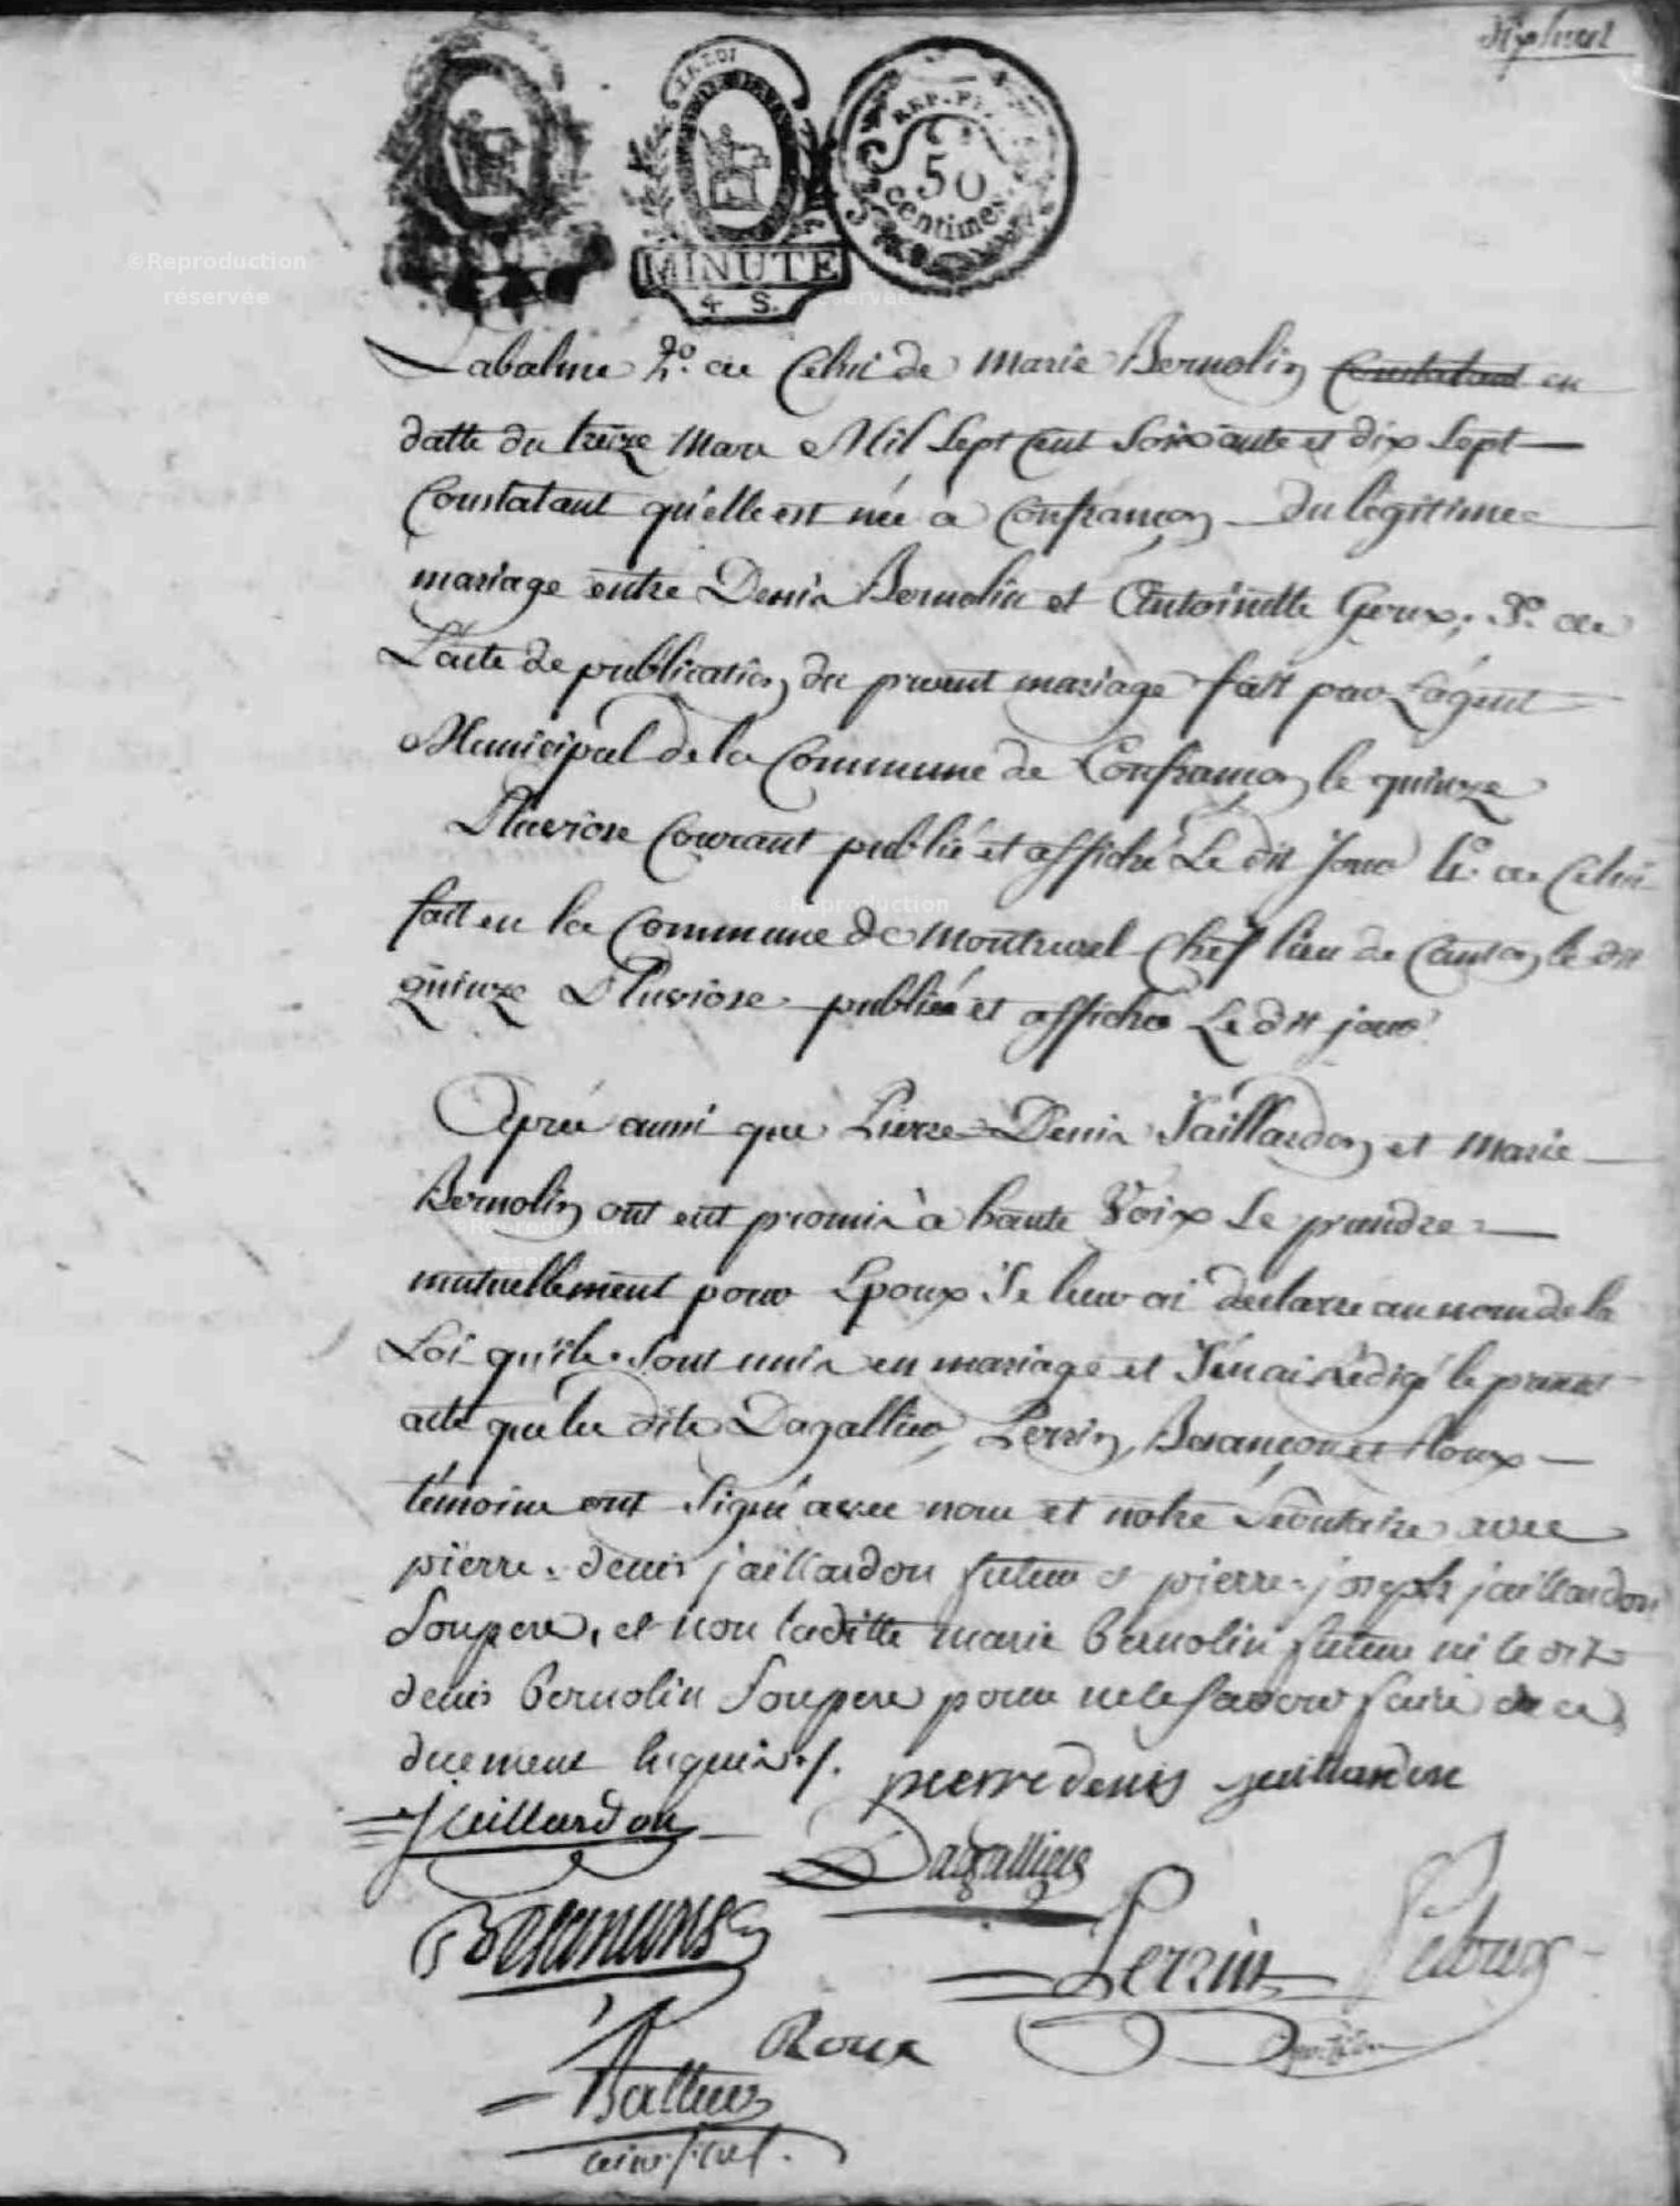 dixhuit
REP. FRA.
50
centimes
MINUTE
4 S.
©Reproduction
réservée
Labalme 2.º de Celui de Marie Bernolin Constatant en
datte du treize Mars Mil Sept Cent Soixante et dix Sept
Constatant qu'elle est née a Confrançon du légitime
mariage entre Denis Bernolin et Antoinette Goux; 3.º de
L'acte de publication du présent mariage fait par L'agent
Municipal de la Commune de Confrançon le quinze
Pluviose Courant publié et affiché Le dit Jour 4.º de Celui
fait en la Commune de Montrevel Chef lieu de Canton le dit
quinze Pluviose publiée et affichée Le dit jour
Après aussi que Pierre Denis Jaillardon et Marie
Bernolin ont eut promis à haute Voix Se prandre
mutuellement pour Epoux Je leur ai declarre au nom de la
Loi qu'ils Sont unis en mariage et J'en ai Rédigé le présent
acte que les dits Dagallier, Perrin, Besançon et Roux
témoins ont Signé avec nous et notre Secrétaire avec
pierre-denis jaillardon futur et pierre-joseph jaillardon
Son pere, et non laditte marie bernolin future ni le dit
denis bernolin Son pere pour ne le savoir faire de ce
duement Requis ./.
pierre denis jaillardon
Jaillardon
Dagallier
Perrin
Roux